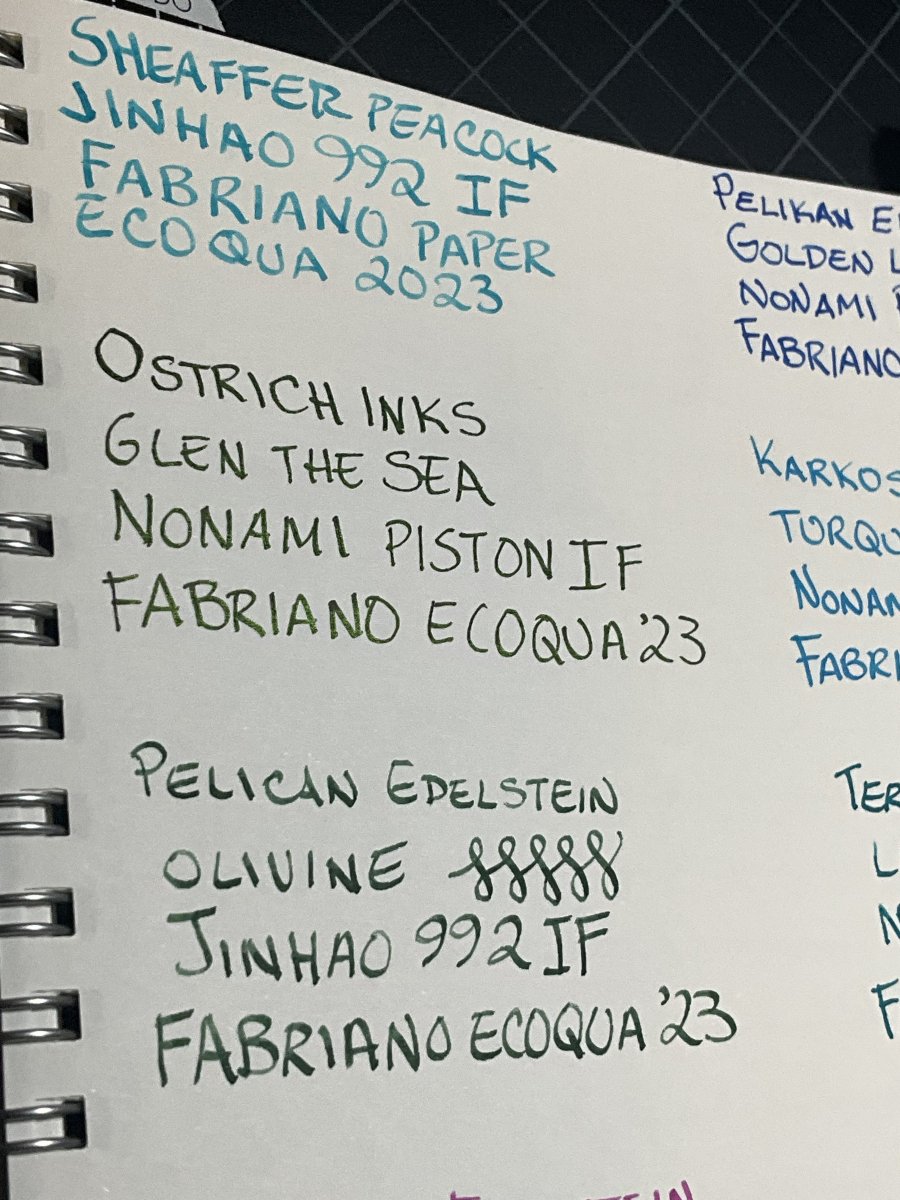 SHEAFFER PEACOCK
JINHAO 992 IF
FABRIANO PAPER
ECOQUA 2023
OSTRICH INKS
GLEN THE SEA
NONAMI PISTON IF
FABRIANO ECOQUA '23
PELICAN EDELSTEIN
OLIVINE
JINHAO 992 IF
FABRIANO ECOQUA '23
PELIKAN
GOLDEN
NONAMI
FABRIANO